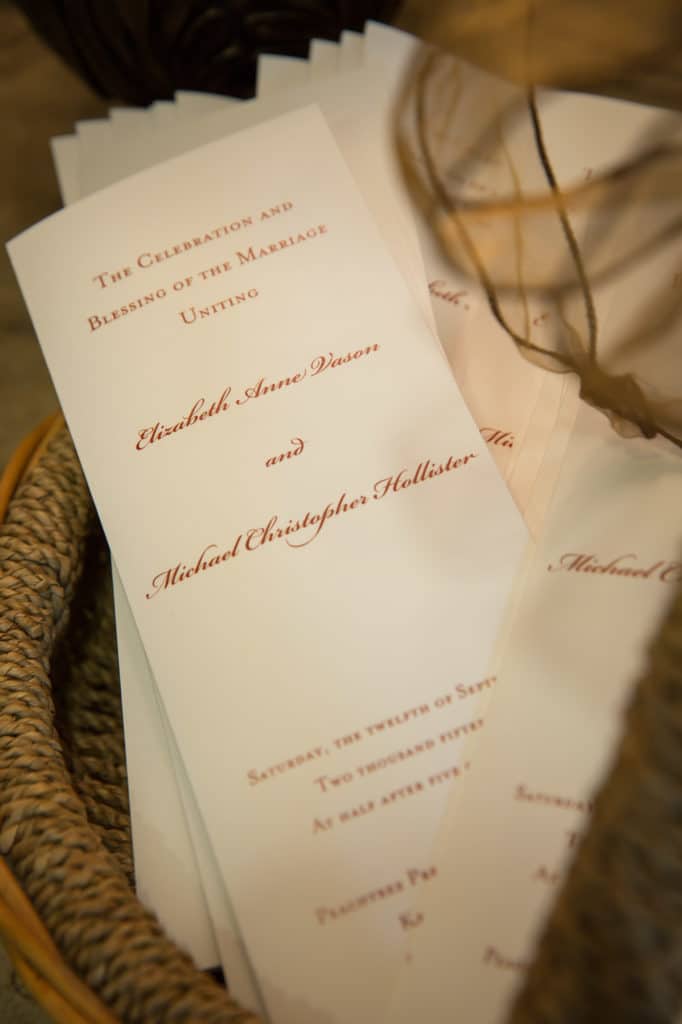 The Celebration and
Blessing of the Marriage
Uniting
Elizabeth Anne Vason
and
Michael Christopher Hollister
Saturday, the twelfth of Sept
Two thousand fifte
At half after five
Peachtree Pr
Michael C
Saturday